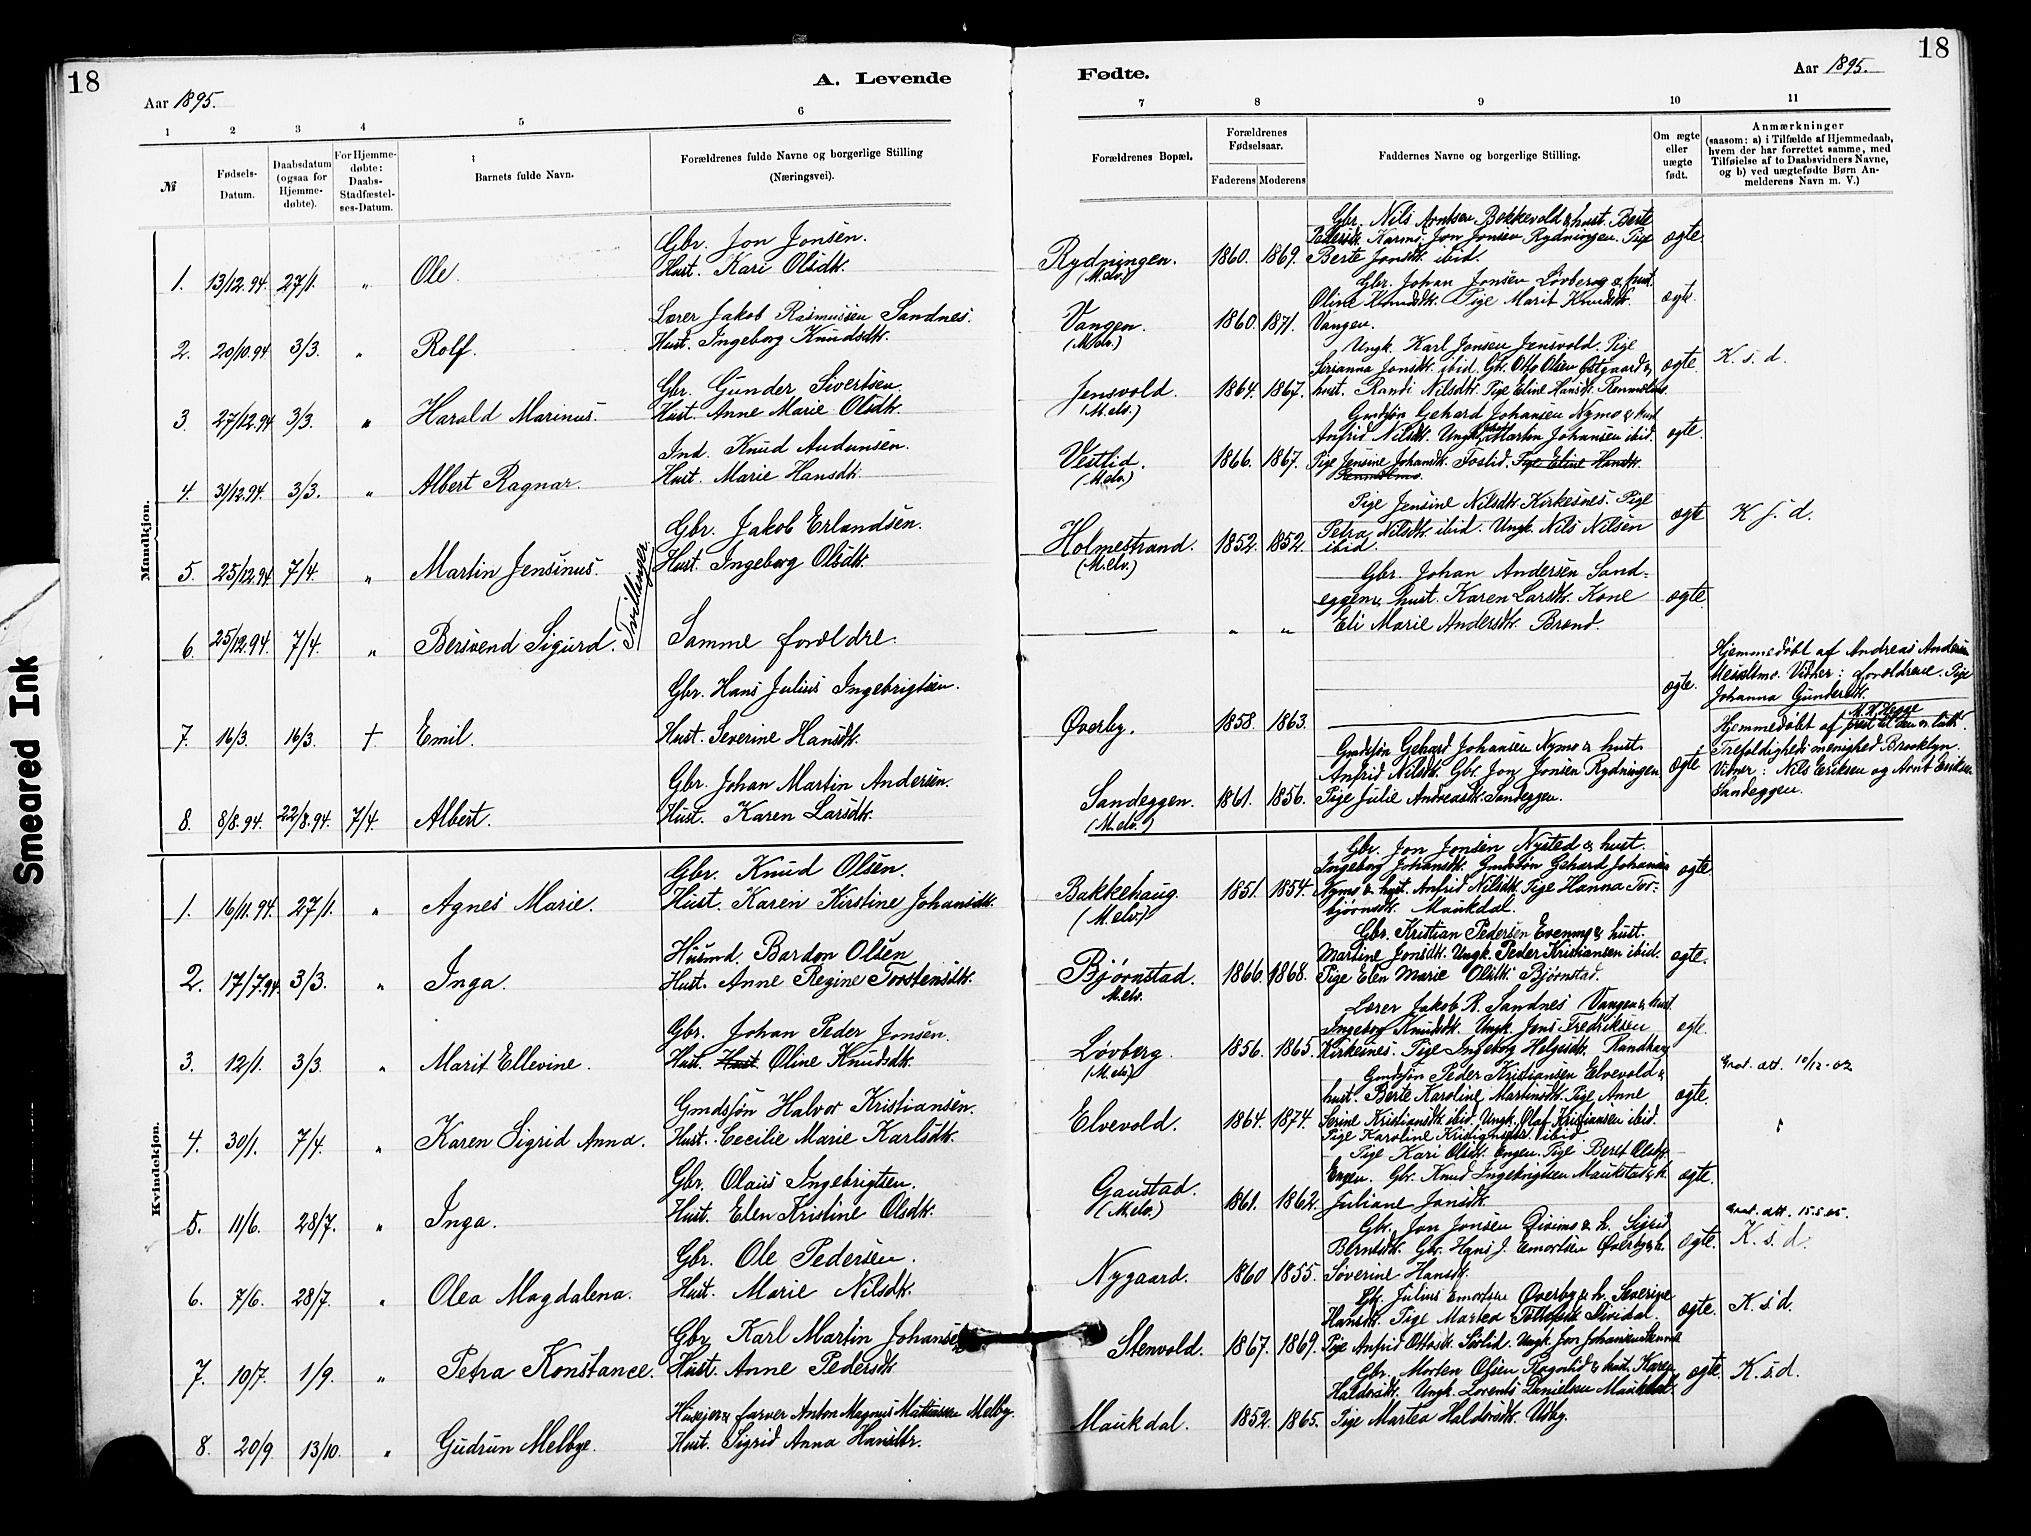 18
A. Levende
Aar 1895.
Fødte.
Aar 1895.
18
1
2
3
4
5
6
7
8
9
10
11
№
Fødsels-
Datum.
Daabsdatum
(ogsaa for
Hjemme-
døbte).
For Hjemme-
døbte:
Daabs-
Stadfæstel-
ses-Datum.
Barnets fulde Navn.
Forældrenes fulde Navne og borgerlige Stilling
(Næringsvei).
Forældrenes Bopæl.
Forældrenes
Fødselsaar.
Faderens
Moderens
Faddernes Navne og borgerlige Stilling.
Om ægte
eller
uægte
født.
Anmærkninger
(saasom: a) i Tilfælde af Hjemmedaab,
hvem der har forrettet samme, med
Tilføielse af to Daabsvidners Navne,
og b) ved uægtefødte Børn An-
melderens Navn m. V.)
Mandkjøn.
Gbr. Jon Jonsen.
1. 13/12.94 27/1. " Ole. Hust. Kari Olsdtr.
Rydningen. 1860. 1869.
(M.elv.)
Gbr. Nils Arntsen Bakkevold & hust. Berte
Pedersdtr. Karms. Jon Jonsen Rydningen. Pige
Berte Jonsdtr. ibid.
ægte.
Lærer Jakob Rasmussen Sandnes.
2. 20/10.94 3/3. " Rolf. Hust. Ingeborg Knudsdtr.
Vangen. 1860. 1871.
(M.elv.)
Gbr. Johan Jonsen Løvberg & hust.
Oline Knudsdtr. Pige Marit Knudsdtr.
Vangen.
ægte.
Gbr. Gunder Sivertsen.
3. 27/12.94 3/3. " Harald Marinus. Hust. Anne Marie Olsdtr.
Jensvold. 1864. 1867.
(M.elv.)
Ungk. Karl Jonsen Jensvold. Pige
Serianna Jonsdtr. ibid. Gbr. Otto Olsen Østgaard &
hust. Randi Nilsdtr. Pige Eline Hansdtr. Rennmelmo.
ægte.
K. s. d.
Ind. Knud Audunsen.
4. 31/12.94. 3/3. " Albert Ragnar. Hust. Marie Hansdtr.
Vestlid. 1866. 1867.
(M.elv.)
Gmdsøn Gehard Johansen Nymo & hust
Anfrid Nilsdtr. Ungk. Martin Johansen ibid.
Pige Jensine Johansdtr. Foslid. Pige Eline Hansdtr.
Rennmelmo.
ægte.
Gbr. Jakob Erlandsen.
5. 25/12.94 7/4. " Martin Jensinus. Hust. Ingeborg Olsdtr.
Tvillinger
Holmestrand. 1852. 1852.
(M.elv.)
Pige Jensine Nilsdtr. Kirkesnes. Pige
Petra Nilsdtr. ibid. Ungk. Nils Nilsen
ibid.
ægte
K. s. d.
6. 25/12.94. 7/4. " Bersvend Sigurd. Samme forældre.
" "
Gbr. Johan Andersen Sand-
eggen & hust. Karen Larsdtr. Kone
Eli Marie Andersdtr. Brand.
ægte
Gbr. Hans Julius Ingebrigtsen.
7. 16/3. 16/3. † Emil. Hust. Severine Hansdtr.
Øverby. 1858. 1863.
ægte.
Hjemmedøbt af Andreas Andersen
Messeltmo. Vidner: forældrene. Pige
Johanna Gundersdtr.
Gbr. Johan Martin Andersen.
8. 8/8.94. 22/8.94. 7/4. Albert. Hust. Karen Larsdtr.
Sandeggen. 1861. 1856.
(M.elv.)
Gmdsøn Gehard Johansen Nymo & hust.
Anfrid Nilsdtr. Gbr. Jon Jonsen Rydningen
Pige Julie Andreasdtr. Sandeggen.
ægte
M. H. Hegge
Hjemmedøbt af prest til den ev. luth.
Trefoldigheds menighed Brooklyn.
Vidner: Nils Eriksen og Arnt Eriksen
Sandeggen.
Kvindekjøn.
Gbr. Knud Olsen.
1. 16/11.94. 27/1. " Agnes Marie. Hust. Karen Kirstine Johansdtr.
Bakkehaug. 1851. 1854.
(M.elv.)
Gbr. Jon Jonsen Nysted & hust.
Ingeborg Johansdtr. Gmdsøn Gehard Johansen
Nymo & hust. Anfrid Nilsdtr. Pige Hanna Tor-
bjørnsdtr. Maukdal.
ægte
Husmd. Bardon Olsen
2. 17/7.94. 3/3. " Inga. Hust. Anne Regine Torstensdtr.
Bjørnstad. 1866. 1868.
M.elv.
Gbr. Kristian Pedersen Evening & hust.
Martine Jonsdtr. Ungk. Peder Kristiansen ibid.
Pige Elen Marie Olsdtr. Bjørnstad.
ægte.
Gbr. Johan Peder Jonsen.
3. 12/1. 3/3. " Marit Ellevine. Hust. Hust Oline Knudsdtr.
Løvberg. 1856. 1865.
(M.elv.)
Lærer Jakob R. Sandnes Vangen & hust
Ingeborg Knudsdtr. Ungk. Jens Fredriksen
Kirkesnes. Pige Ingeborg Helgesdtr. Randhaug
ægte.
Gmdssøn Halvor Kristiansen.
4. 30/1. 7/4. " Karen Sigrid Anna. Hust. Cecilie Marie Karlsdtr.
Elvevold. 1864. 1874.
Gmdsøn Peder Kristiansen Elvevold &
hust. Berte Karoline Martinsdtr. Pige Anne
Serine Kristiansdtr. ibid. Ungk. Olaf Kristiansen ibid.
Pige Karoline Kristiansdtr. ibid
ægte.
att. 10/12-02
Gbr. Olaus Ingebrigtsen.
5. 11/6. 28/7. " Inga. Hust. Elen Kristine Olsdtr.
Gaustad. 1861. 1862.
(M.elv.)
Pige Kari Olsdtr. Engen. Pige Beret Olsdtr.
Engen. Gbr. Knud Ingebrigtsen Maukstad & h.
Juliane Jonsdtr.
ægte.
Gbr. Ole Pedersen.
6. 7/6. 28/7. " Olea Magdalena. Hust. Marie Nilsdtr.
Nygaard. 1860 1855.
Gbr. Jon Jonsen Divimo & h. Sigrid
Berntsdtr. Gbr. Hans J. Emortsen Øverby & h.
Severine Hansdtr.
ægte.
att. 15.5.05.
K. s. d.
Gbr. Karl Martin Johansen
7. 10/7. 1/9. " Petra Konstance. Hust. Anne Pedersdtr.
Stenvold. 1867. 1869.
Gbr. Julius Emortsen Øverby & h. Severine
Hansdtr. Pige Martea Tollefsdtr. Dividal.
Pige Anfrid Ottosdtr. Sølid. Ungk. Jon Johansen
ægte.
K. s. d.
Huseier & farver Anton Magnus Mathiassen Melby.
8. 20/9 13/10. " Gudrun Melbye. Hust. Sigrid Anna Hansdtr.
Maukdal. 1852. 1865.
Gbr. Morten Olsen Rognlid & hust. Karen
Haldorsdtr. Ungk. Lorents Danielsen Maukdal.
Pige Martea Haldorsdtr. Udby.
ægte.
K. s. d.
Smeared Ink